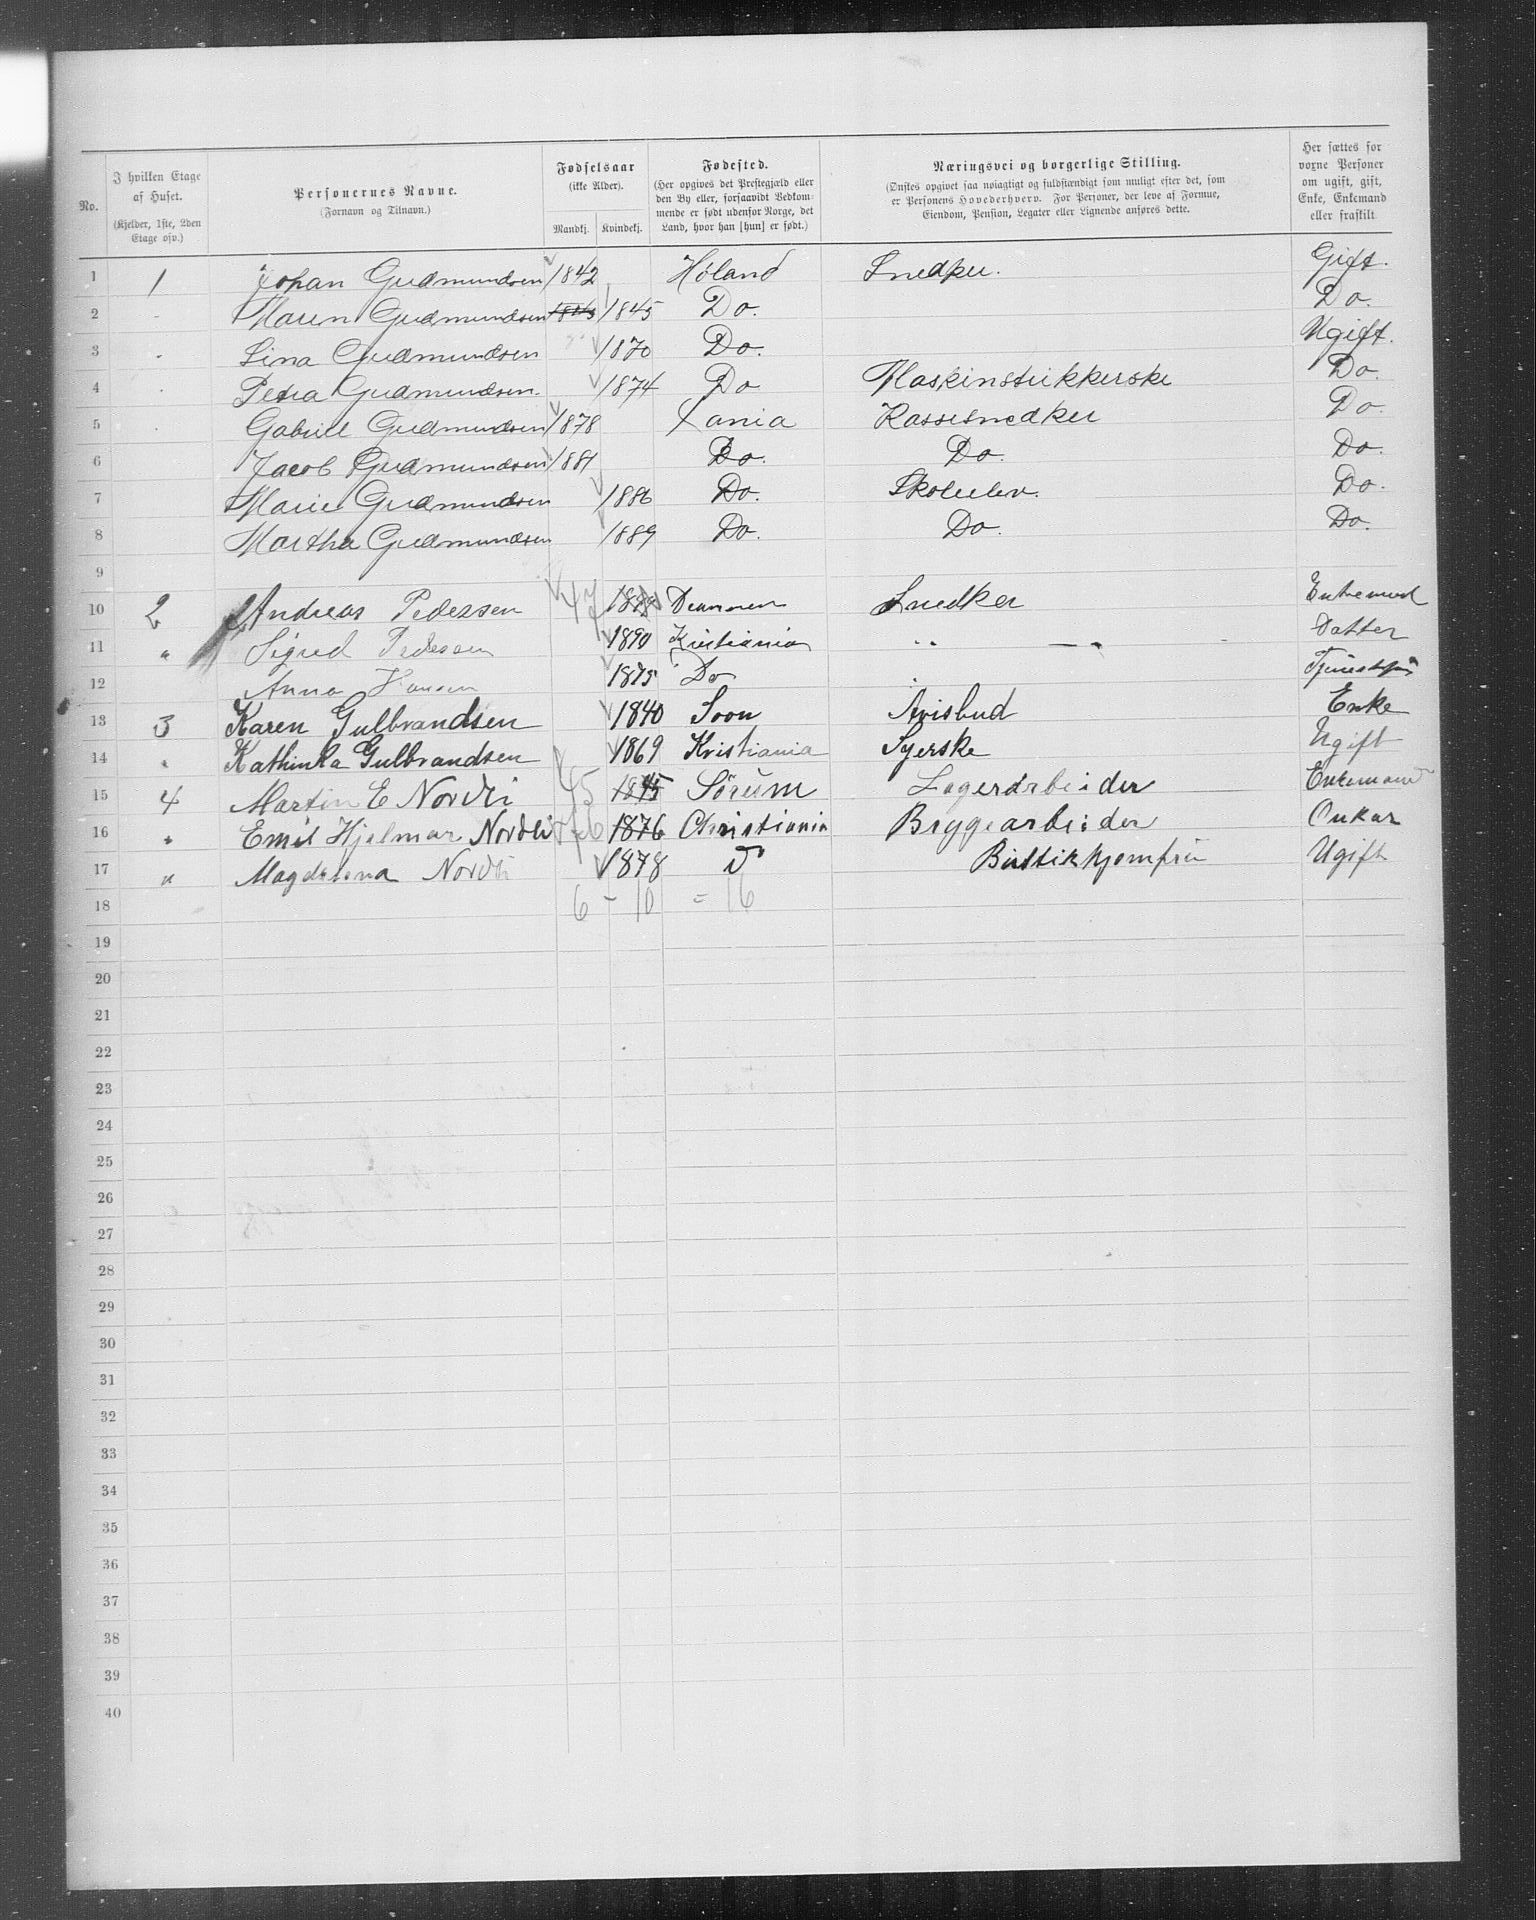 No. | I hvilken Etage af Huset. (Kjelder, 1ste, 2den Etage osv.) | Personernes Navne. (Fornavn og Tilnavn.) | Fødselsaar (ikke Alder). Mandkj. | Kvindekj. | Fødested. (Her opgives det Prestegjæld eller den By eller, forsaavidt Vedkommende er født udenfor Norge, det Land, hvor han [hun] er født.) | Næringsvei og borgerlige Stilling. (Ønskes opgivet saa nøiagtigt og fuldstændigt som muligt efter det, som er Personens Hovederhverv. For Personer, der leve af Formue, Eiendom, Pension, Legater eller Lignende anføres dette. | Her sættes for voxne Personer om ugift, gift, Enke, Enkemand eller fraskilt
1 | 1 | Johan Gudmundsen | 1842 | | Høland | Snedker. | Gift.
2 | | Maren Gudmundsen | | 1845 | Do. | | Do.
3 | | Lina Gudmundsen | | 1870 | Do. | | Ugift.
4 | | Petra Gudmundsen. | | 1874 | Do | Maskinstrikkerske | Do.
5 | | Gabriel Gudmundsen | 1878 | | Xania | Kassesnedker | Do.
6 | | Jacob Gudmundsen | 1881 | | Do. | Do. | Do.
7 | | Marie Gudmundsen | | 1886 | Do. | Skoleelev. | Do.
8 | | Martha Gudmundsen | | 1889 | Do. | Do. | Do.
9
10 | 2 | Andreas Pedersen | 47 | | Drammen | Snedker | Enkemand
11 | " | Sigrid Pedersen | | 1890 | Kristiania | " — " | Datter
12 | | Anna Hansen | | 1875 | Do | |
13 | 3 | Karen Gulbrandsen | | 1840 | Soon | Avisbud | Enke
14 | " | Kathinka Gulbrandsen | | 1869 | Kristiania | Syerske | Ugift
15 | 4 | Martin E Nordli | 45 | 1845 | Sørum | Lagerarbeider | Enkemand
16 | " | Emil Hjalmar Nordli | 76 | 1876 | Christiania | Bryggearbeider | Onkar
17 | " | Magdalena Nordli | | 1878 | D | Butikkjomfru | Ugift
18 | | | 6 – | 10 | = 16
19
20
21
22
23
24
25
26
27
28
29
30
31
32
33
34
35
36
37
38
39
40